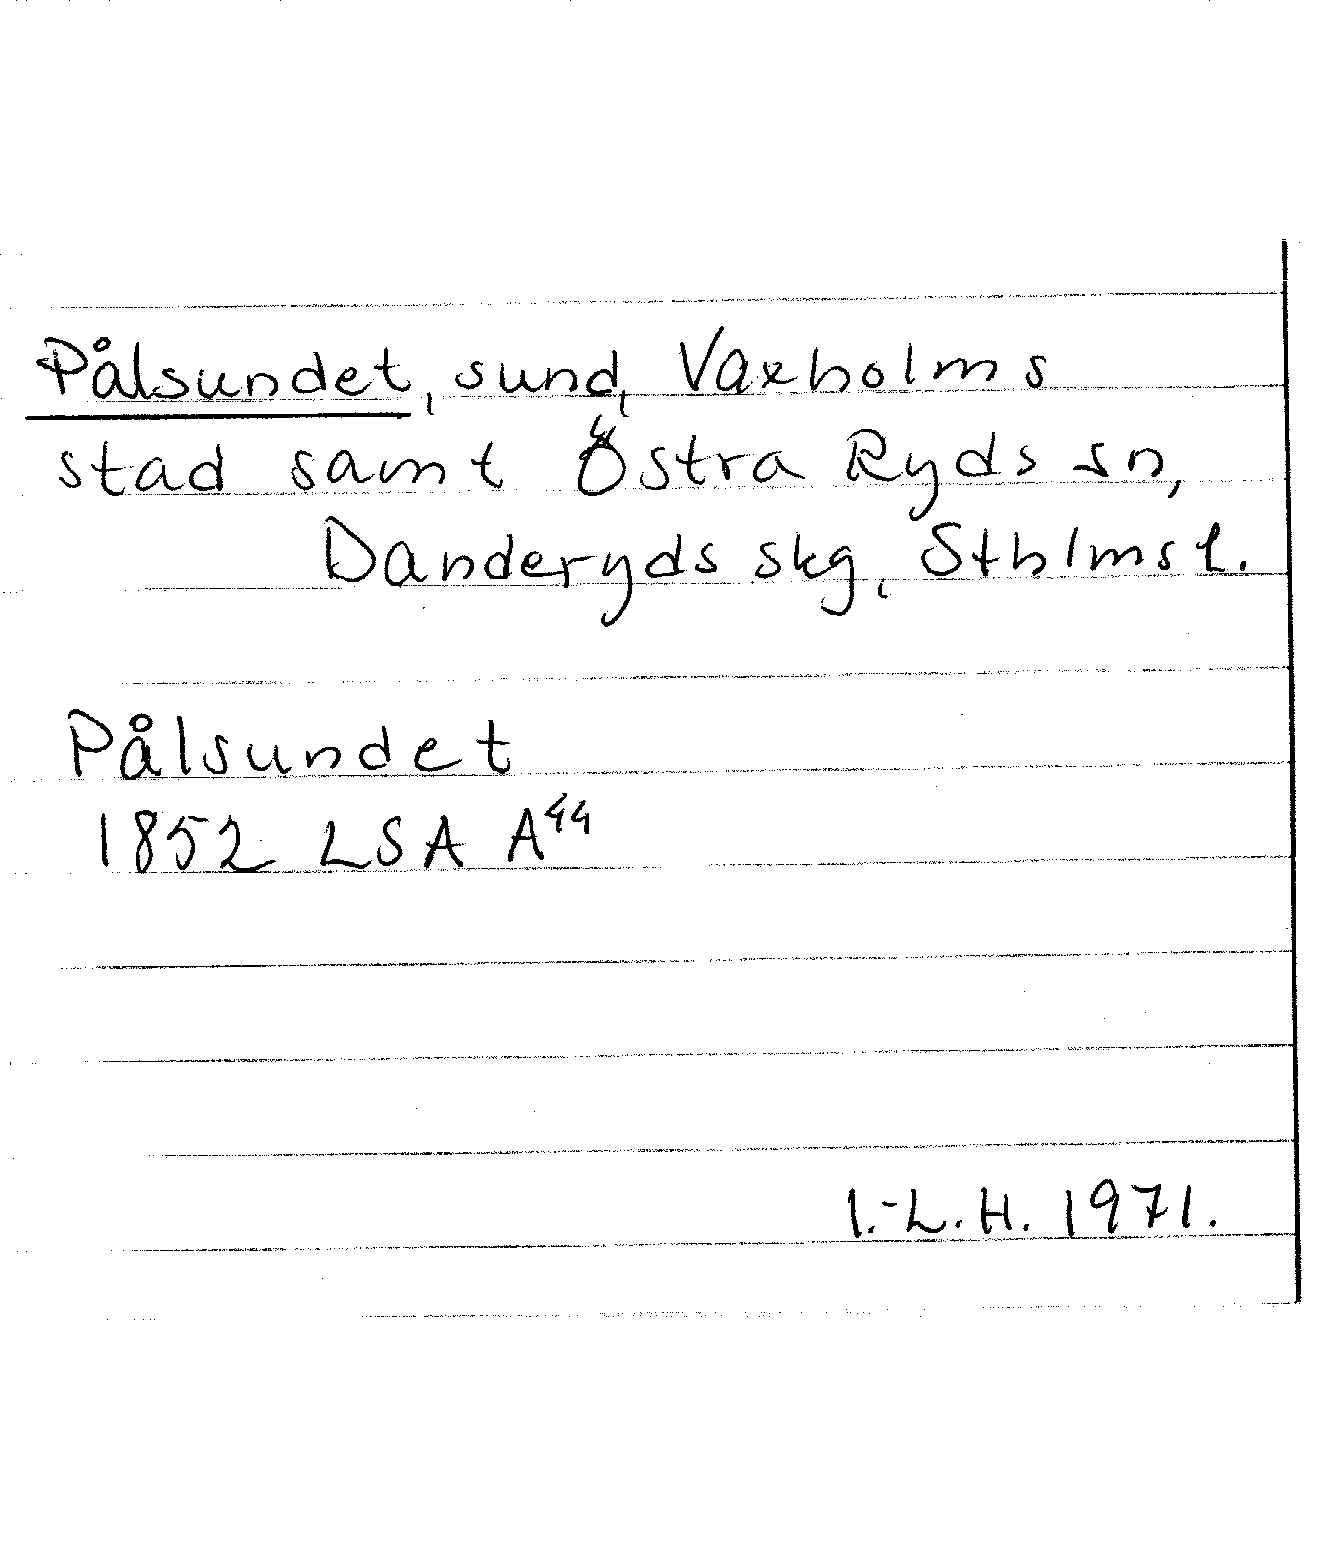 Pålsundet, sund, Vaxholms
stad samt Östra Ryds sn,
Danderyds skg, Sthlms l.
Pålsundet
1852 LSA A⁴⁴
I.-L.H. 1971.